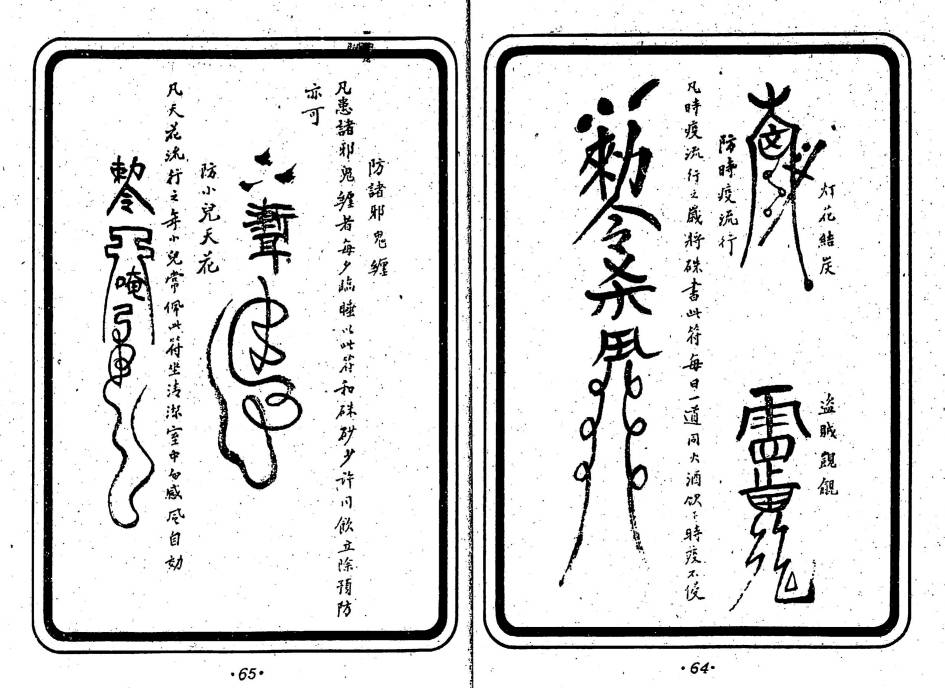 灯花結炭
盗賊覬覦
防時疫流行
凡時疫流行之歲將硃書此符每日一道同火酒飲下時疫不侵
勅令
·64·
防諸邪鬼纏
凡患諸邪鬼纏者每夕臨睡以此符和硃砂少許同飲立除預防
亦可
防小兒天花
凡天花流行之年小兒常佩此符坐清潔室中勿感風自効
勅令
唵
·65·